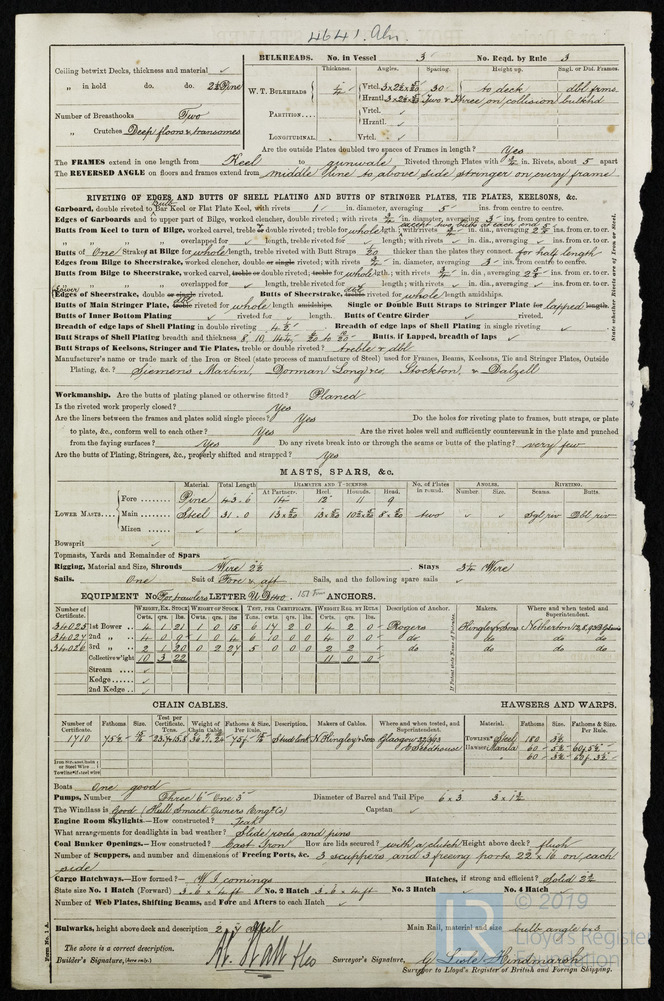 4641. Abn.
BULKHEADS. No. in Vessel 3 No. Reqd. by Rule 3
Thickness. Angles. Spacing. Height up. Sngl. or Dbl. Frames.
Ceiling betwixt Decks, thickness and material
„ in hold do. do. 2½ Pine
W. T. BULKHEADS ¼ Vrtcl. 30 to deck dbl frms
Hrzntl. Two & Three on collision bulkhd
Number of Breasthooks Two
PARTITION.... Vrtcl.
Hrzntl.
„ Crutches Deep floors & transomes
LONGITUDINAL. Vrtcl.
Are the outside Plates doubled two spaces of Frames in length? Yes
The FRAMES extend in one length from Keel to gunwale Riveted through Plates with ¾ in. Rivets, about 5 apart
The REVERSED ANGLE on floors and frames extend from middle line to above side stringer on every frame
RIVETING OF EDGES AND BUTTS OF SHELL PLATING AND BUTTS OF STRINGER PLATES, TIE PLATES, KEELSONS, &c.
Garboard, double riveted to Bar Keel or Flat Plate Keel, with rivets 1 in diameter, averaging 5 ins. from centre to centre.
Edges of Garboards and to upper part of Bilge, worked clencher, double riveted; with rivets ¾ in. diameter, averaging 3 ins. from centre to centre.
Butts from Keel to turn of Bilge, worked carvel, treble double riveted; for whole lgth; with rivets ¾ in. dia., averaging ins. from cr. to cr.
„ „ „ overlapped for length, treble riveted for length; with rivets in. dia., averaging ins. from cr. to cr.
Butts of One Strake at Bilge for whole length, treble riveted with Butt Straps thicker than the plates they connect. for half length
Edges from Bilge to Sheerstrake, worked clencher, double or single riveted; with rivets ¾ in. diameter, averaging 3 ins. from centre to centre.
Butts from Bilge to Sheerstrake, worked carvel, treble or double riveted; treble for whole lgth; with rivets ¾ in. dia., averaging ins. from cr. to cr.
„ „ „ overlapped for length, treble riveted for length; with rivets in. dia., averaging ins. from cr. to cr.
Edges of Sheerstrake, double or single riveted. Butts of Sheerstrake, treble riveted for whole length amidships.
Butts of Main Stringer Plate, treble riveted for whole length amidships. Single or Double Butt Straps to Stringer Plate for lapped length.
Butts of Inner Bottom Plating riveted for length. Butts of Centre Girder riveted.
Breadth of edge laps of Shell Plating in double riveting Breadth of edge laps of Shell Plating in single riveting
Butt Straps of Shell Plating breadth and thickness Butts, if Lapped, breadth of laps
Butt Straps of Keelsons, Stringer and Tie Plates, treble or double riveted? treble & dbl
Manufacturer's name or trade mark of the Iron or Steel (state process of manufacture of Steel) used for Frames, Beams, Keelsons, Tie and Stringer Plates, Outside
Plating, &c.? Siemens Martin, Dorman Long & Co, Stockton, & Dalzell
State whether Rivets are of Iron or Steel.
Workmanship. Are the butts of plating planed or otherwise fitted? Planed
Is the riveted work properly closed? Yes
Are the liners between the frames and plates solid single pieces? Yes Do the holes for riveting plate to frames, butt straps, or plate
to plate, &c., conform well to each other? Yes Are the rivet holes well and sufficiently countersunk in the plate and punched
from the faying surfaces? Yes Do any rivets break into or through the seams or butts of the plating? very few
Are the butts of Plating, Stringers, &c., properly shifted and strapped? Yes
MASTS, SPARS, &c.
Material. Total Length. DIAMETER AND THICKNESS. No. of Plates in round. ANGLES. RIVETING.
At Partners. Heel. Hounds. Head. Number. Size. Seams. Butts.
LOWER MASTS.... Fore ........ Pine 43.6 14 12 11 9
Main ........ Steel 31.0 two Sgl riv Dbl riv
Mizen ........
Bowsprit
Topmasts, Yards and Remainder of Spars
Rigging, Material and Size, Shrouds Wire 2½ Stays 3¼ Wire
Sails. One Suit of Fore & aft Sails, and the following spare sails
EQUIPMENT No. For trawlers LETTER ANCHORS.
Number of Certificate. WEIGHT, EX. STOCK WEIGHT OF STOCK TEST, PER CERTIFICATE. WEIGHT REQ. BY RULE Description of Anchor. Makers. Where and when tested and Superintendent.
Cwts. qrs. lbs. Cwts. qrs. lbs. Tons. cwts. qrs. lbs. Cwts. qrs. lbs.
34025 1st Bower 4 1 21 1 0 15 6 17 2 0 4 2 0 Rogers Hingley & Sons Netherton
34027 2nd „ 4 0 9 1 0 4 6 10 0 0 4 0 0 do do do do
34026 3rd „ 2 1 20 0 2 27 5 0 0 0 2 2 do do do do
Collective w'ight 10 3 22 11 0 0
Stream
Kedge
2nd Kedge
If Patent state Name of Patentee
CHAIN CABLES. HAWSERS AND WARPS.
Number of Certificate. Fathoms. Size. Test per Certificate. Tons. Weight of Chain Cable. Fathoms & Size, Per Rule. Description. Makers of Cables. Where and when tested, and Superintendent. Material. Fathoms. Size. Fathoms & Size, Per Rule.
1710 75½ Stud link N. Hingley & Sons Glasgow TOWLINE Steel 180
HAWSER Manila 60
60
Iron Stream Chain or Steel Wire
Towline if steel wire
Boats One good
Pumps, Number Three 6 One 3 Diameter of Barrel and Tail Pipe 6 x 3 3 x 1½
The Windlass is Good (Hull Smack Owners Eng Co) Capstan
Engine Room Skylights.—How constructed? Teak
What arrangements for deadlights in bad weather? Slide rods and pins
Coal Bunker Openings.—How constructed? Cast Iron How are lids secured? with a clutch Height above deck? flush
Number of Scuppers, and number and dimensions of Freeing Ports, &c. 3 scuppers and 3 freeing ports 22 x 16 on each
side
Cargo Hatchways.—How formed? W I comings Hatches, if strong and efficient? Solid 2½
State size No. 1 Hatch (Forward) 3.6 x 4 ft No. 2 Hatch 3.6 x 4 ft No. 3 Hatch No. 4 Hatch
Number of Web Plates, Shifting Beams, and Fore and Afters to each Hatch
Bulwarks, height above deck and description Steel Main Rail, material and size bulb angle 6 x 3
The above is a correct description.
Builder's Signature, (here only.) & Co Surveyor's Signature, G Lisle Hindmarsh
Surveyor to Lloyd's Register of British and Foreign Shipping.
Form No. 1 A.
© 2019
LR Lloyd's Register
Foundation